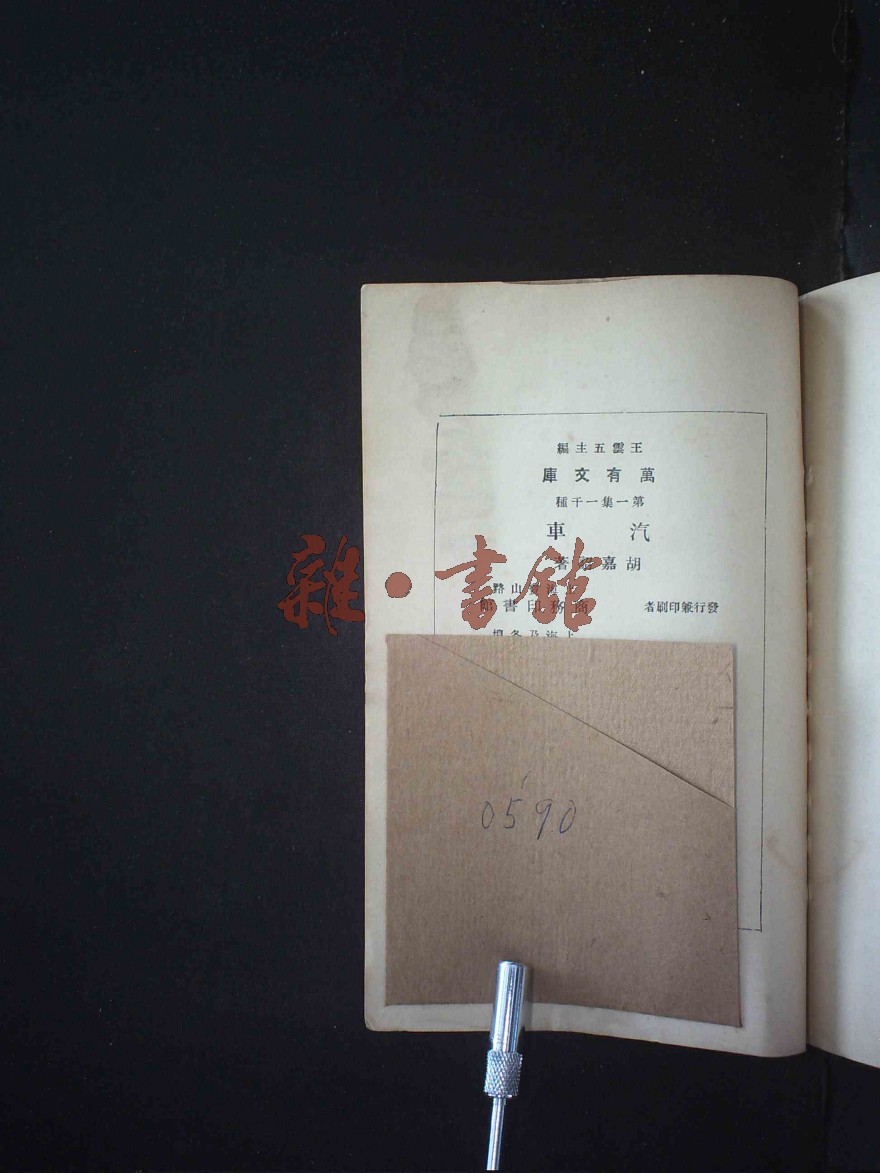 王雲五主編
萬有文庫
第一集一千種
汽車
胡嘉著
山路
發行兼印刷者 商務印書館
上海及各埠
0590
雜·書館